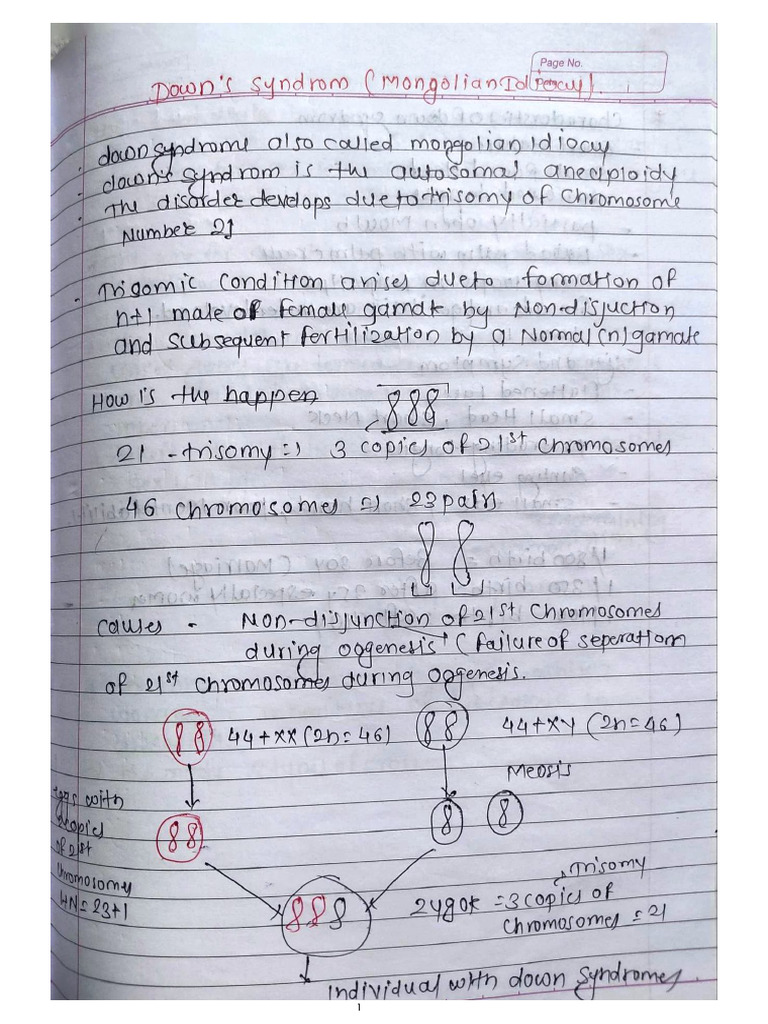 Page No.
Down's Syndrom (Mongolian Id
down syndrome also called mongolian Idiocy
down's syndrom is the autosomal aneuploidy
The disorder develops due to trisomy of Chromosome
Number 21
Trisomic Condition arises due to formation of
n+1 male of female gamat by Non-disjuction
and subsequent fertilization by a Normal (n) gamate
How is the happen 888
21 - trisomy => 3 copies of 21st Chromosomes
46 Chromosomes => 23 pain
8 8
Causes - Non-disjunction of 21st Chromosomes
during oogenesis (failure of seperation
of 21st chromosomes during oogenesis.
88 44+XX (2n=46) 88 44+XY (2n=46)
Meosis
eggs with
2 copies
of 21st
Chromosomy
HN=23+1
88 8 8
Trisomy
888 zygot = 3 copies of
Chromosomes = 21
individual with down syndromes.
1